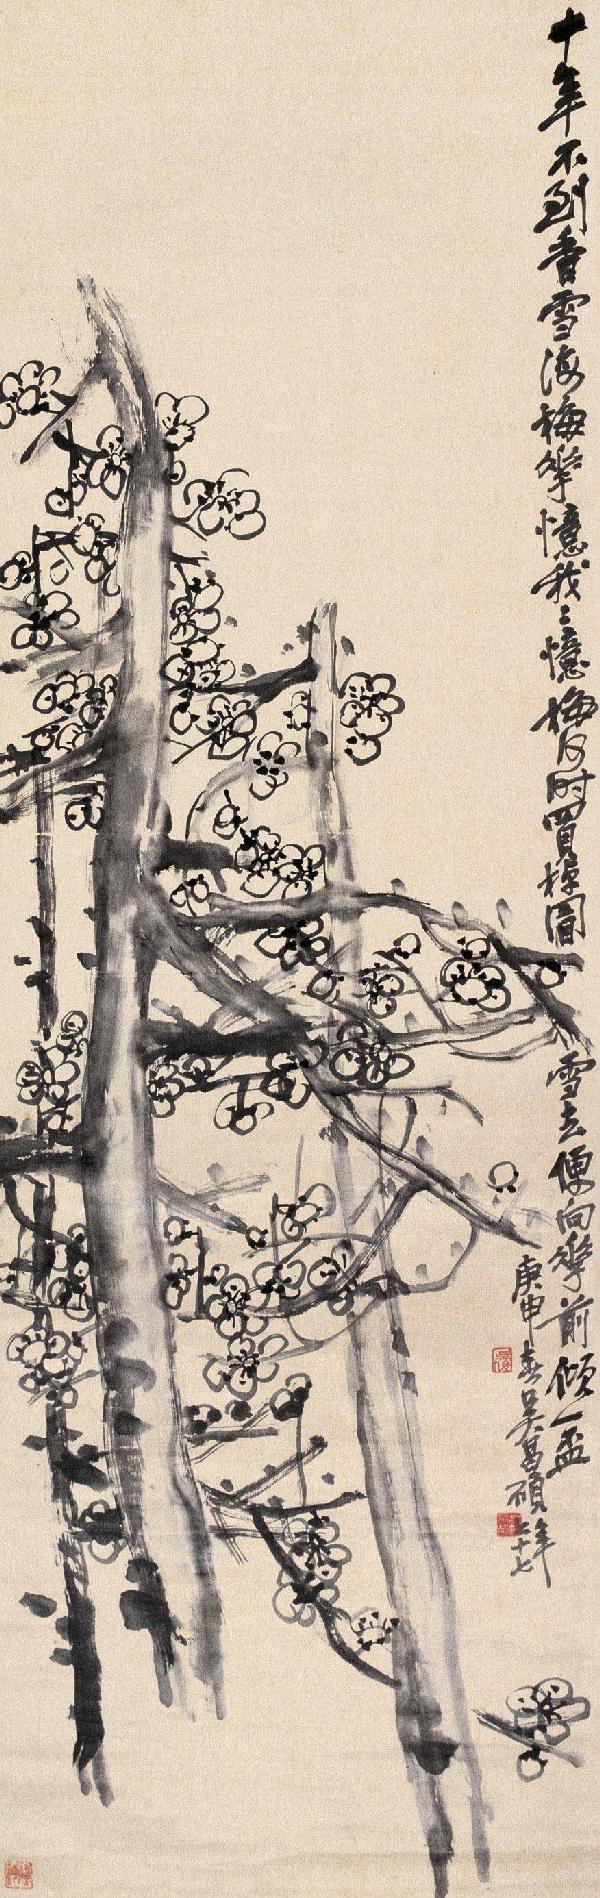 十年不到香雪海梅花憶我我憶梅何時買棹圖雪去便向花前傾一盃
庚申春吳昌碩年七十七